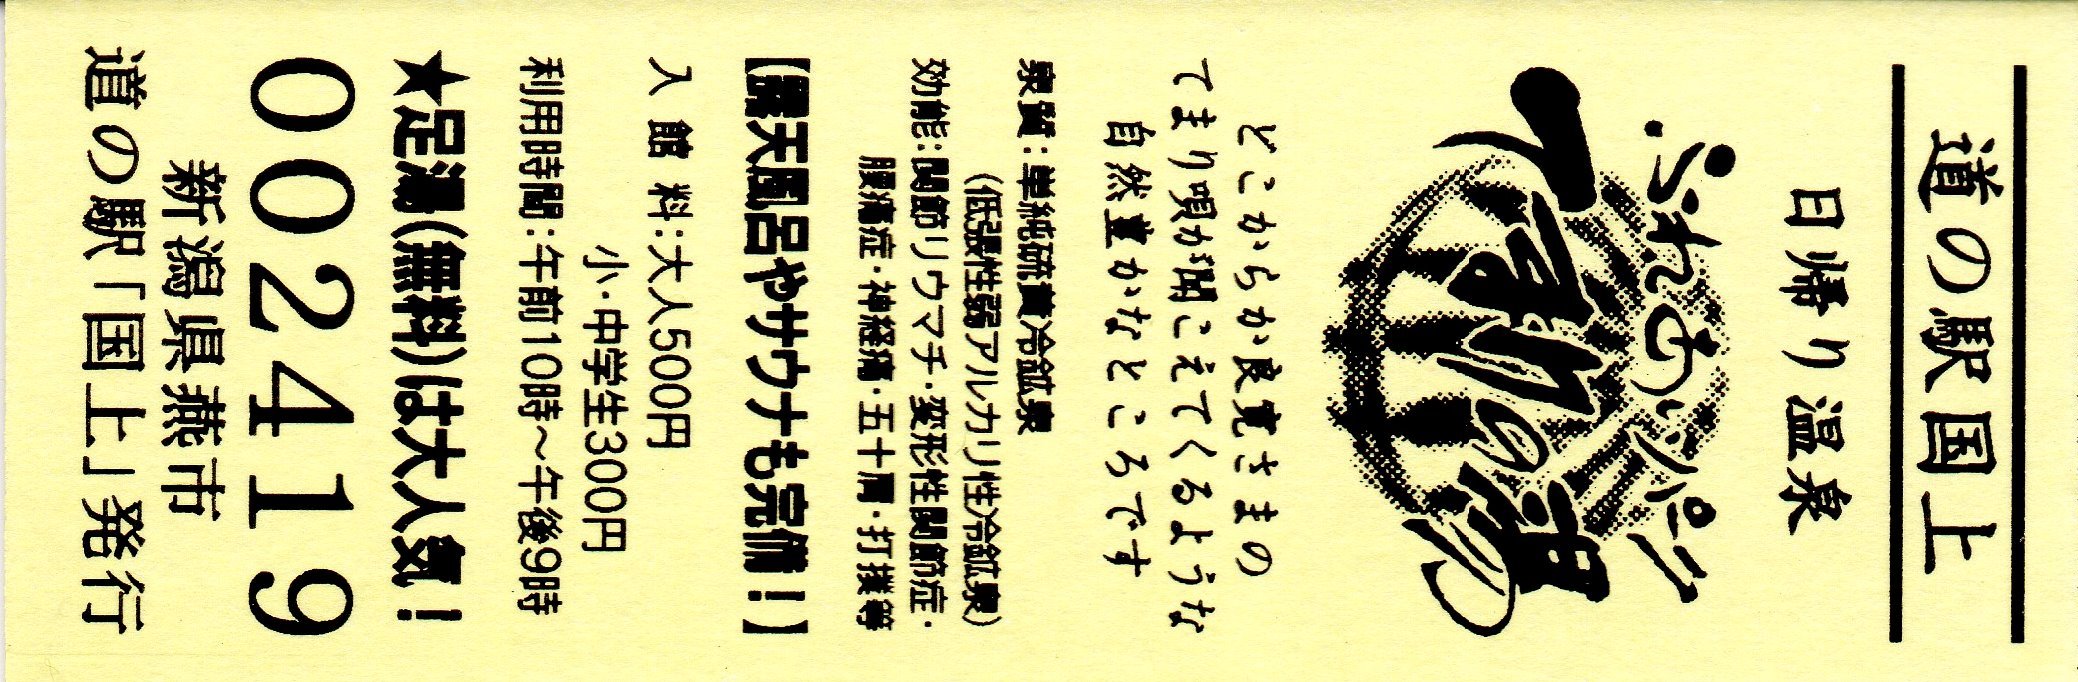 道の駅国上
日帰り温泉
ふれあいパーク
てまりの湯
どこからか良寛さまの
てまり唄が聞こえてくるような
自然豊かなところです
泉質：単純硫黄冷鉱泉
(低張性弱アルカリ性冷鉱泉)
効能：関節リウマチ・変形性関節症・
腰痛症・神経痛・五十肩・打撲等
【露天風呂やサウナも完備！】
入館料：大人500円
小・中学生300円
利用時間：午前10時～午後9時
★足湯(無料)は大人気！
002419
新潟県燕市
道の駅「国上」発行